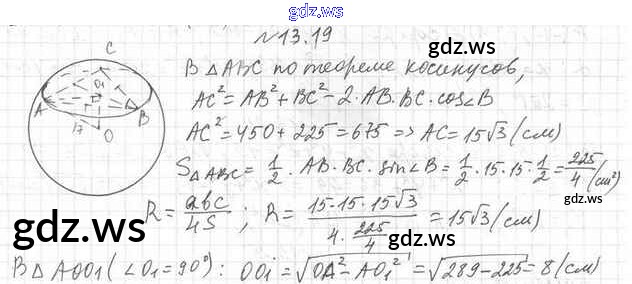 gdz.ws
№13.19
gdz.ws
C
O₁
A
B
17
O
В △ABC по теореме косинусов,
AC² = AB² + BC² - 2·AB·BC·cos∠B
AC² = 450 + 225 = 675 => AC = 15√3 (см)
S△ABC = 1/2 · AB·BC·sin∠B = 1/2 · 15·15·1/2 = 225/4 (см²)
gdz.ws
R = abc/4S ; R = 15·15·15√3 / (4·225/4) = 15√3 (см)
gdz.ws
gdz.ws
В △AOO₁ (∠O₁=90°): OO₁ = √(OA² - AO₁²) = √(289-225) = 8 (см)
gdz.ws